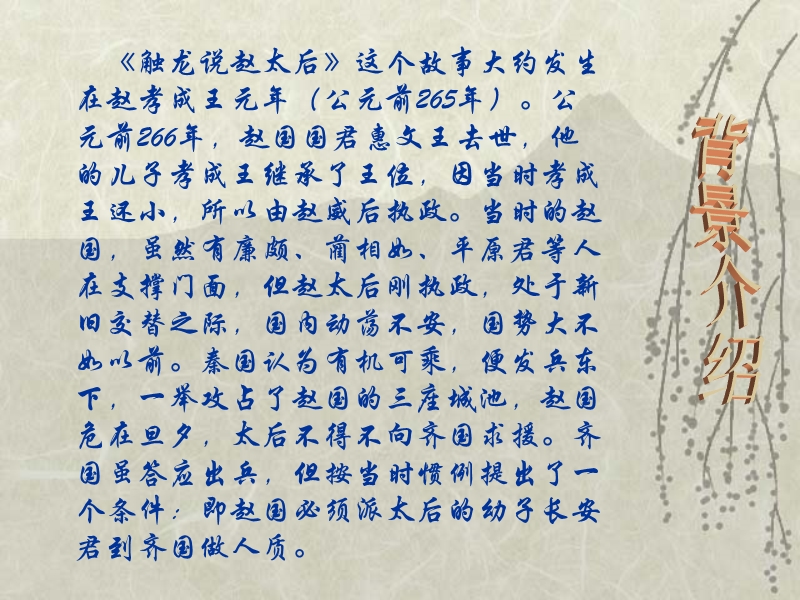 《触龙说赵太后》这个故事大约发生
在赵孝成王元年（公元前265年）。公
元前266年，赵国国君惠文王去世，他
的儿子孝成王继承了王位，因当时孝成
王还小，所以由赵威后执政。当时的赵
国，虽然有廉颇、蔺相如、平原君等人
在支撑门面，但赵太后刚执政，处于新
旧交替之际，国内动荡不安，国势大不
如以前。秦国认为有机可乘，便发兵东
下，一举攻占了赵国的三座城池，赵国
危在旦夕，太后不得不向齐国求援。齐
国虽答应出兵，但按当时惯例提出了一
个条件：即赵国必须派太后的幼子长安
君到齐国做人质。
背景介绍